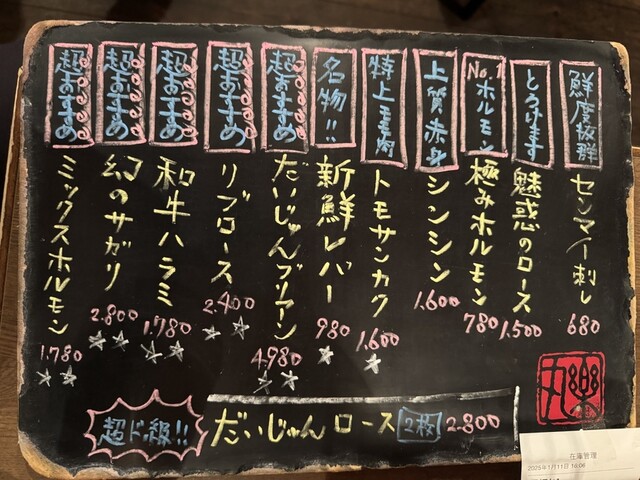 鮮度抜群
センマイ刺し
680
とろけます
魅惑のロース
1,500
No.1ホルモン
極みホルモン
780
上質赤身
シンシン
1,600
特上モモ肉
トモサンカク
1,600
☆
名物!!
新鮮レバー
980
☆
超おすすめ
だいじゅんブリアン
4,980
☆☆
超おすすめ
リブロース
2,400
☆☆
超おすすめ
和牛ハラミ
1,780
☆☆
超おすすめ
幻のサガリ
2,800
☆☆
超おすすめ
ミックスホルモン
1,780
☆☆
超ド級!! だいじゅんロース 2枚 2,800
在庫管理
2025年1月11日 18:06